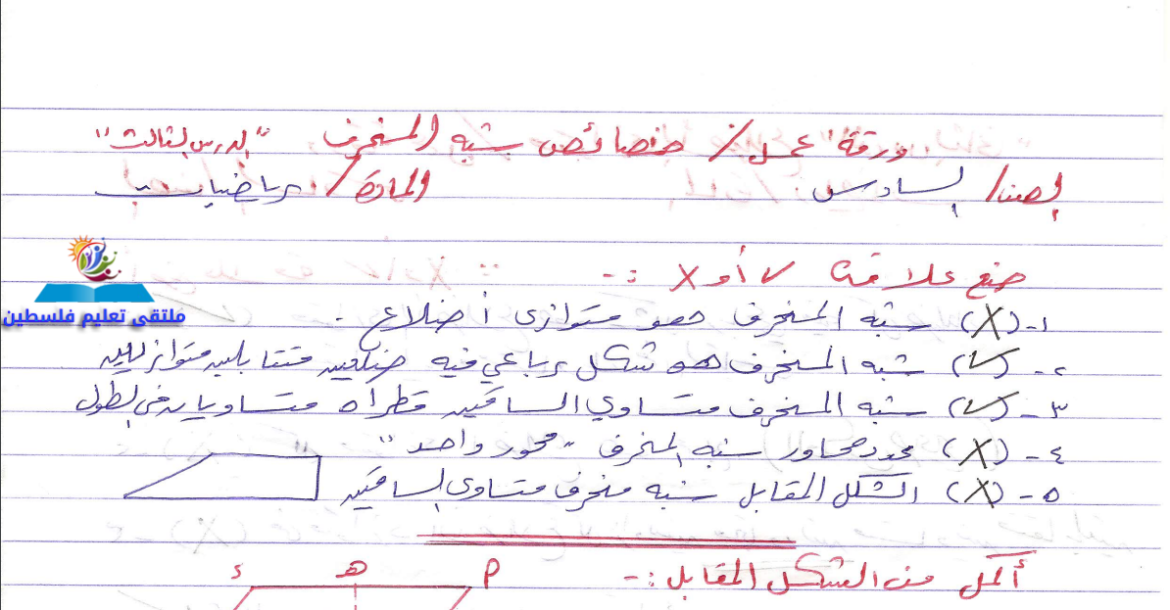 ورقة عمل / خصائص شبه المنحرف "الدرس الثالث"
الصف / السادس المادة / رياضيات
ضع علامة ✓ أو X :-
١- (X) شبه المنحرف هو متوازي أضلاع .
٢- (✓) شبه المنحرف هو شكل رباعي فيه ضلعين متقابلين متوازيين
٣- (✓) شبه المنحرف متساوي الساقين قطراه متساويان في الطول
٤- (X) عدد محاور شبه المنحرف "محور واحد"
٥- (X) الشكل المقابل شبه منحرف متساوي الساقين
أكمل من الشكل المقابل :-
م هـ د
ملتقى تعليم فلسطين